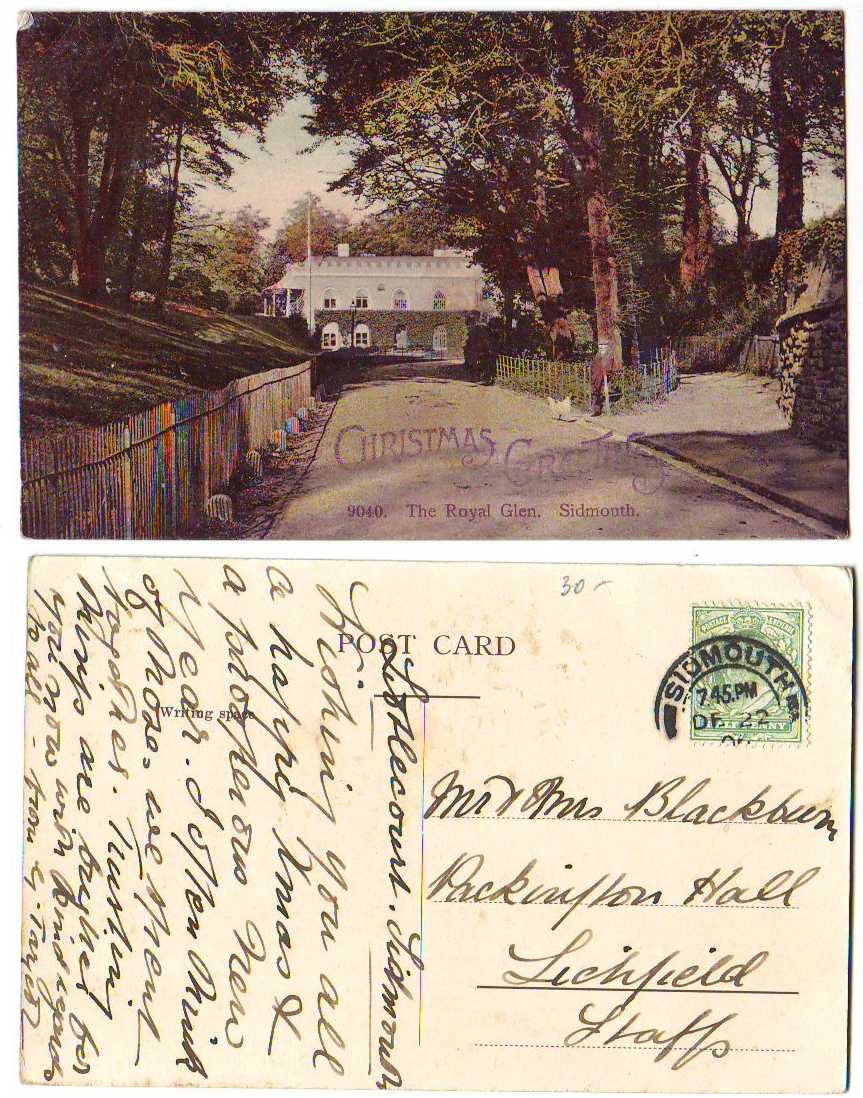 CHRISTMAS GREETINGS
9040. The Royal Glen. Sidmouth.
30-
POST CARD
Writing space
POSTAGE
SIDMOUTH
7.45.PM
DE 22
PENNY
Mr & Mrs Blackburn
Packington Hall
Lichfield
Staffs
Sidmouth
Wishing you all
a happy Xmas &
a prosperous New
Year. I often think
of those we spent
together. Trusting
things are brighter
you now with kind regards
to all - from